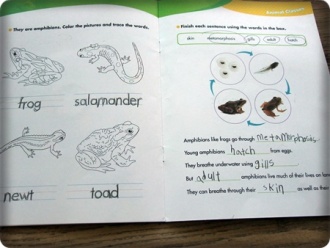 They are amphibians. Color the pictures and trace the words.
frog
salamander
newt
toad
Finish each sentence using the words in the box.
skin metamorphosis gills adult hatch
Amphibians like frogs go through metamorphosis
Young amphibians hatch from eggs.
They breathe underwater using gills
But adult amphibians live much of their lives on land
They can breathe through their skin as well as their